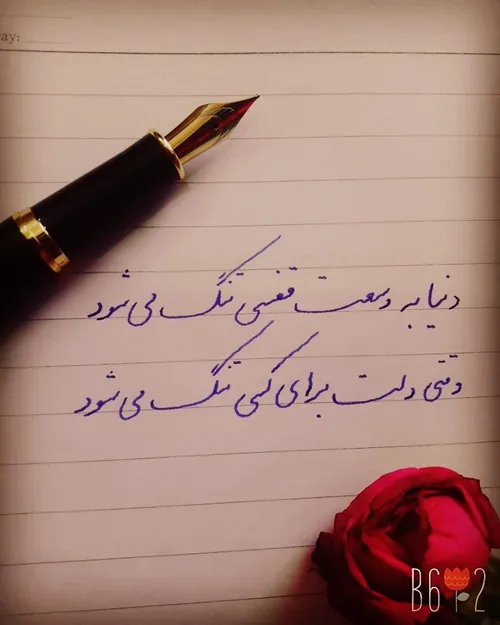 ay:
دنیا به وسعت قفسی تنگ می شود
وقتی دلت برای کسی تنگ می شود
B612